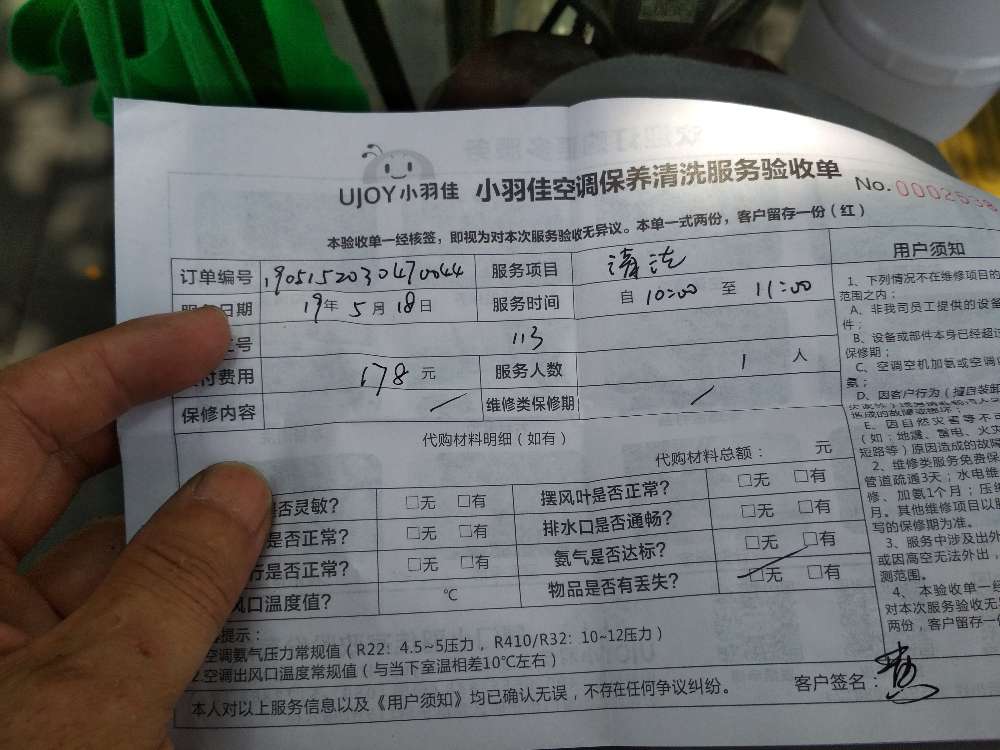 UJOY小羽佳 小羽佳空调保养清洗服务验收单 No.0002538
本验收单一经核签，即视为对本次服务验收无异议。本单一式两份，客户留存一份（红）
订单编号 1905152030470044 服务项目 清洗
日期 19年5月18日 服务时间 自 10:00 至 11:00
号 113
付费用 178 元 服务人数 1 人
保修内容 / 维修类保修期 /
代购材料明细（如有）
代购材料总额： 元
是否灵敏？ □无 □有 摆风叶是否正常？ □无 □有
是否正常？ □无 □有 排水口是否通畅？ □无 □有
行是否正常？ □无 □有 氨气是否达标？ □无 □有
风口温度值？ ℃ 物品是否有丢失？ □无 □有
提示：
空调氨气压力常规值（R22：4.5~5压力，R410/R32：10~12压力）
2.空调出风口温度常规值（与当下室温相差10℃左右）
本人对以上服务信息以及《用户须知》均已确认无误，不存在任何争议纠纷。 客户签名：
用户须知
1、下列情况不在维修项目的
范围之内：
A、非我司员工提供的设备
件；
B、设备或部件本身已经超过
保修期；
C、空调空机加氨或空调
氨；
D、因客户行为（擅自装卸
造成的故障或损坏；
E、因自然灾害等不
（如：地震、雷电、火灾
短路等）原因造成的故障
2、维修类服务免费保
管道疏通3天；水电维
修、加氨1个月；压缩
月。其他维修项目以服
写的保修期为准。
3、服务中涉及出外
或因高空无法外出，
测范围。
4、本验收单一经
对本次服务验收无
两份，客户留存一份